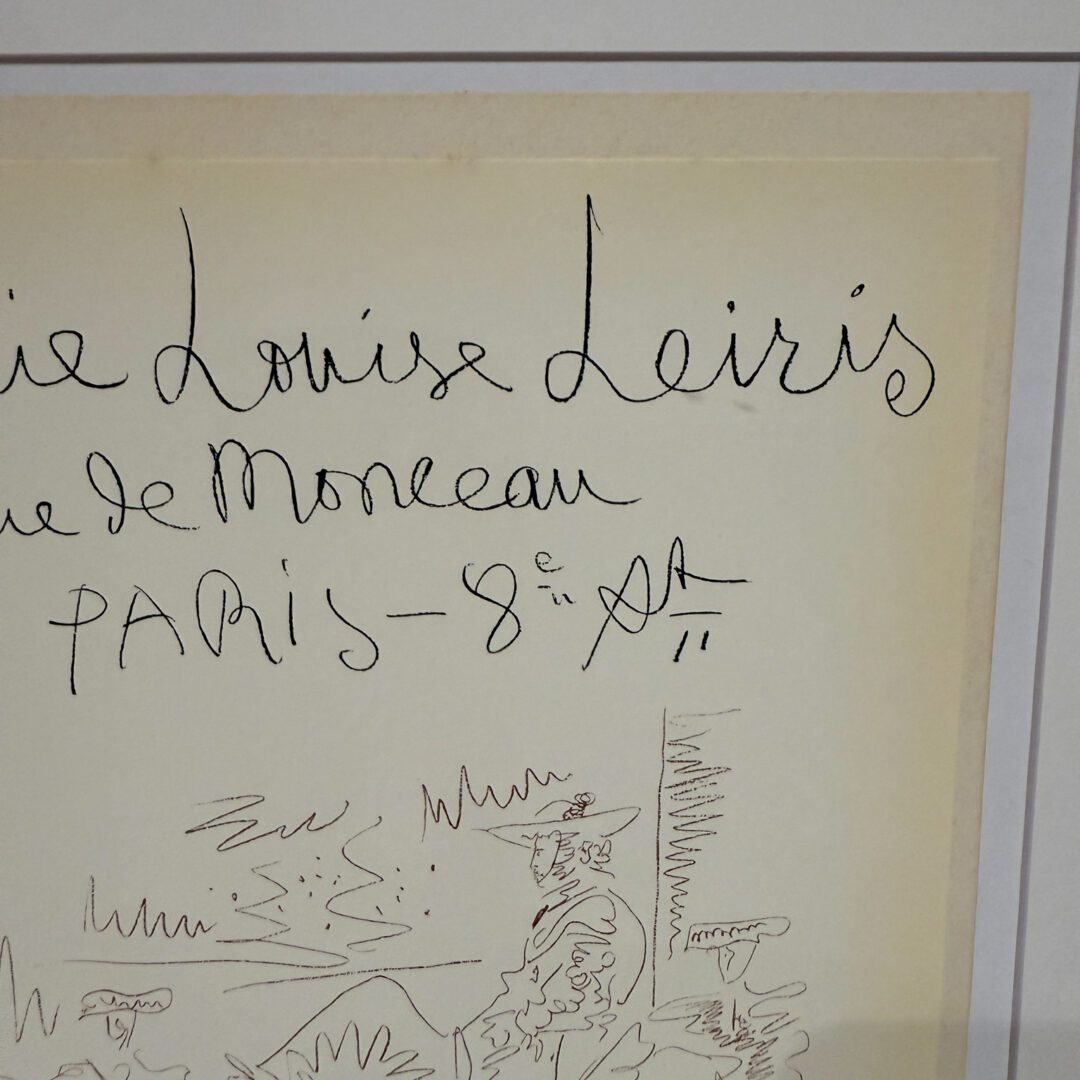 ie Louise Leiris
ue de Monceau
PARIS – 8e At